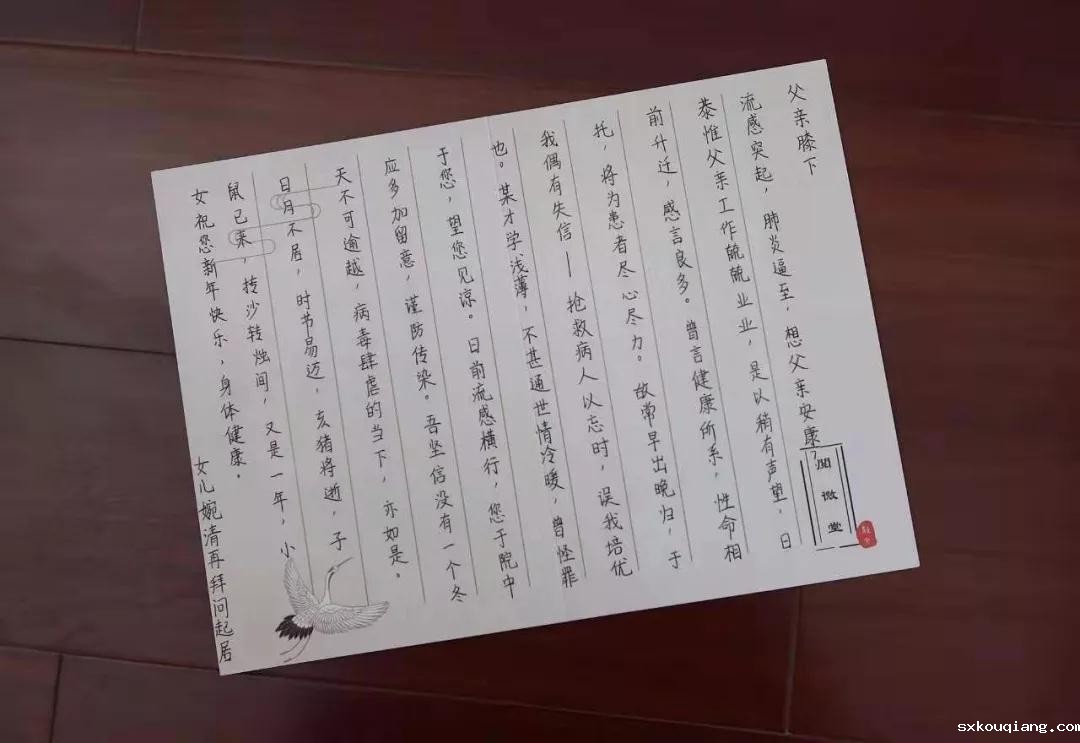 父亲膝下
流感突起，肺炎逼至，想父亲安康？
恭惟父亲工作兢兢业业，是以稍有声望，日
前升迁，感言良多。曾言健康所系，性命相
托，将为患者尽心尽力。故常早出晚归，于
我偶有失信——抢救病人以忘时，误我培优
也。某才学浅薄，不甚通世情冷暖，曾怪罪
于您，望您见凉。日前流感横行，您于院中
应多加留意，谨防传染。吾坚信没有一个冬
天不可逾越，病毒肆虐的当下，亦如是。
日月不居，时节易迈，亥猪将逝，子
鼠已来，抟沙转烛间，又是一年，小
女祝您新年快乐，身体健康。
女儿婉清再拜问起居
閲微堂
sxkouqiang.com